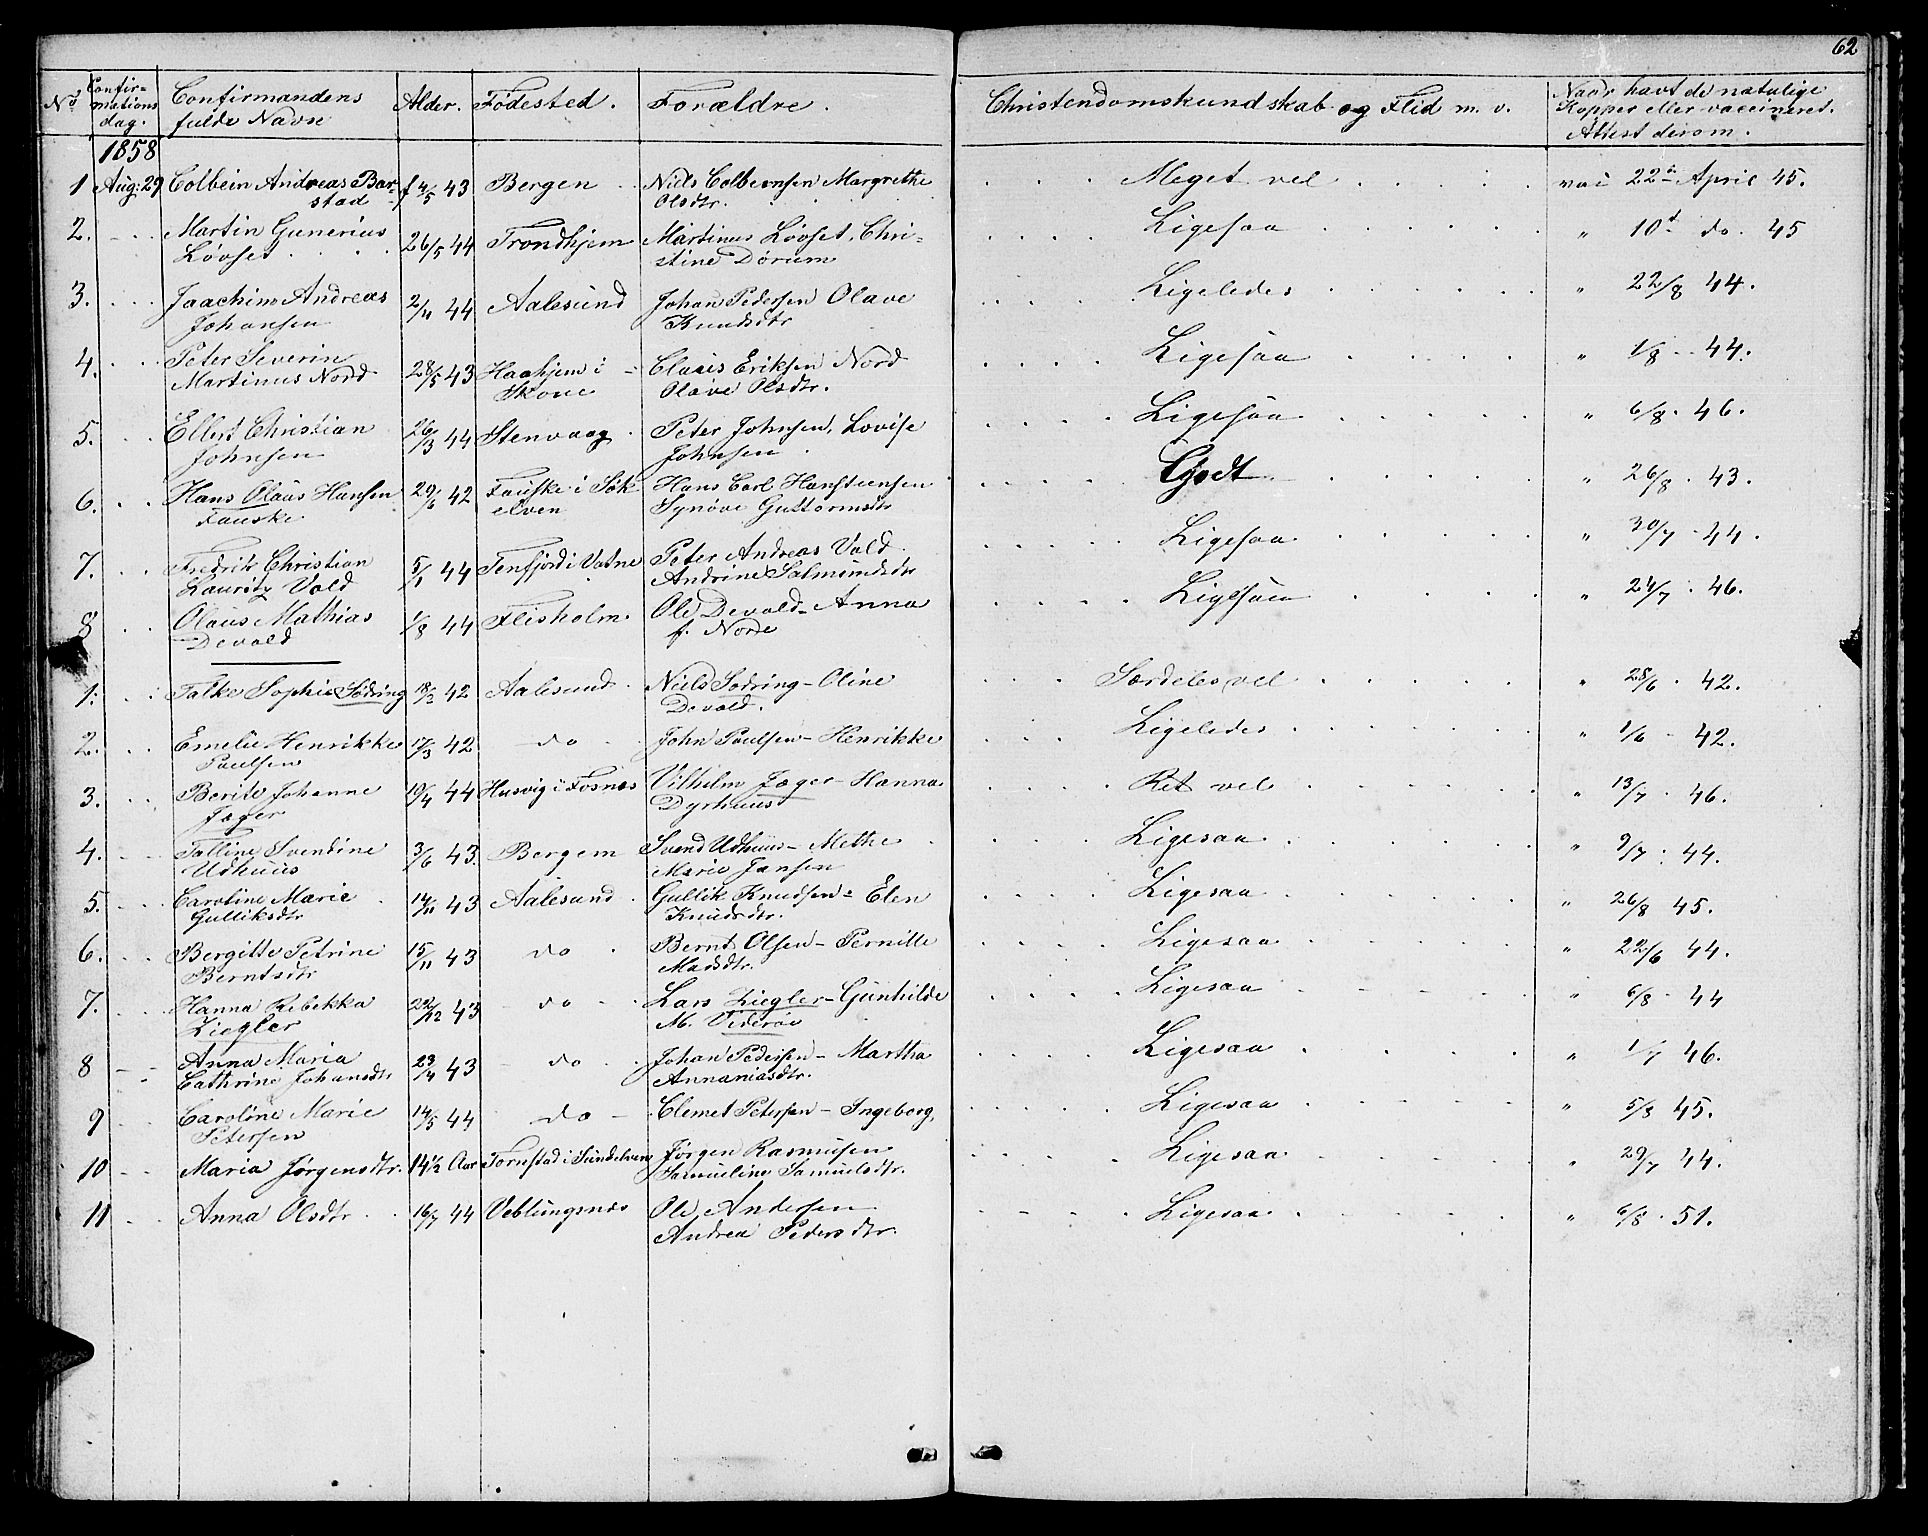 62
No Confirmations dag. Confirmandens fulde Navn Alder. Fødested. Forældre. Christendomskundskab og Flid m. v. Naar havt de natulige Kopper eller vaccineret. Attest derom.
1858
1 Aug: 29 Colbein Andreas Barstad f 4/5 43 Bergen Niels Colbeinsen Margrethe Olsdtr. Meget vel vac 22 April 45.
2. Martin Gunerius Løvset 26/5 44 Trondhjem Martinus Løvset, Christine Dørum Ligesaa " 10d do. 45
3. Joachim Andreas Johansen 2/11 44 Aalesund Johan Pedersen Olave Knudsdtr Ligeledes " 22/8 44.
4. Peter Severin Martinus Nord 28/5 43 Haahjem i Skoue Claus Eriksen Nord Olave Olsdtr. Ligesaa " 1/8 44.
5. Ellert Christian Johnsen 26/3 44 Stenvaag Peter Johnsen, Lovise Johnsen Ligesaa " 6/8 46.
6. Hans Olaus Hansen Fauske 29/6 42 Fauske i Søkelven Hans Carl Hansteensen Synøve Guttormsdtr Godt " 26/8 43.
7. Fredrik Christian Lauritz Vold 5/1 44 Tenfjord i Vatne Peter Andreas Vold Andrine Salmundsdtr Ligesaa " 30/7 44.
8 Olaus Mathias Devold 1/8 44 Flisholm Ole Devold - Anna f. Norde Ligesaa " 24/7 46.
1. Talke Sophie Södring 18/3 42 Aalesund Niels Sodring - Oline Devold. Særdeles vel " 28/6 42.
2. Emelie Henrikke Paulsen 17/3 42 do John Paulsen - Henrikke Ligeledes " 1/6 42.
3. Berite Johanne Jæger 19/4 44 Husvig i Fosnæs Vilhelm Jæger - Hanna Dyrhuus Ret vel " 13/7 46.
4. Talline Svendine Udhuus 3/6 43. Bergem Svend Udhuus - Methe Marie Jansen Ligesaa " 9/7 44.
5. Caroline Marie Gulliksdtr 14/11 43 Aalesund Gullik Knudsen - Elen Knudsdtr. Ligesaa " 26/8 45.
6. Bergitte Petrine Berntsdtr 15/11 43 do Bernt Olsen - Pernille Madsdtr. Ligesaa " 22/6 44.
7. Hanna Rebekka Ziegler 22/12 43 do Lars Ziegler - Gunhilde M. Viderøe Ligesaa " 6/8 44
8 Anna Maria Cathrine Johansdtr 23/4 43 do Johan Pedersen - Martha Annaniasdtr. Ligesaa " 1/7 46.
9 Caroline Marie Petersen 14/5 44 do Clemet Petersen - Ingeborg, Ligesaa " 5/8 45.
10 Maria Jørgensdtr. 14 1/2 Aar Tornstad i Sundelven Jørgen Rasmusen Samueline Samuelsdtr. Ligesaa " 29/7 44.
11 Anna Olsdtr 16/7 44 Veblungsnæs Ole Andersen Andrea Pedersdtr. Ligesaa " 6/8 51.